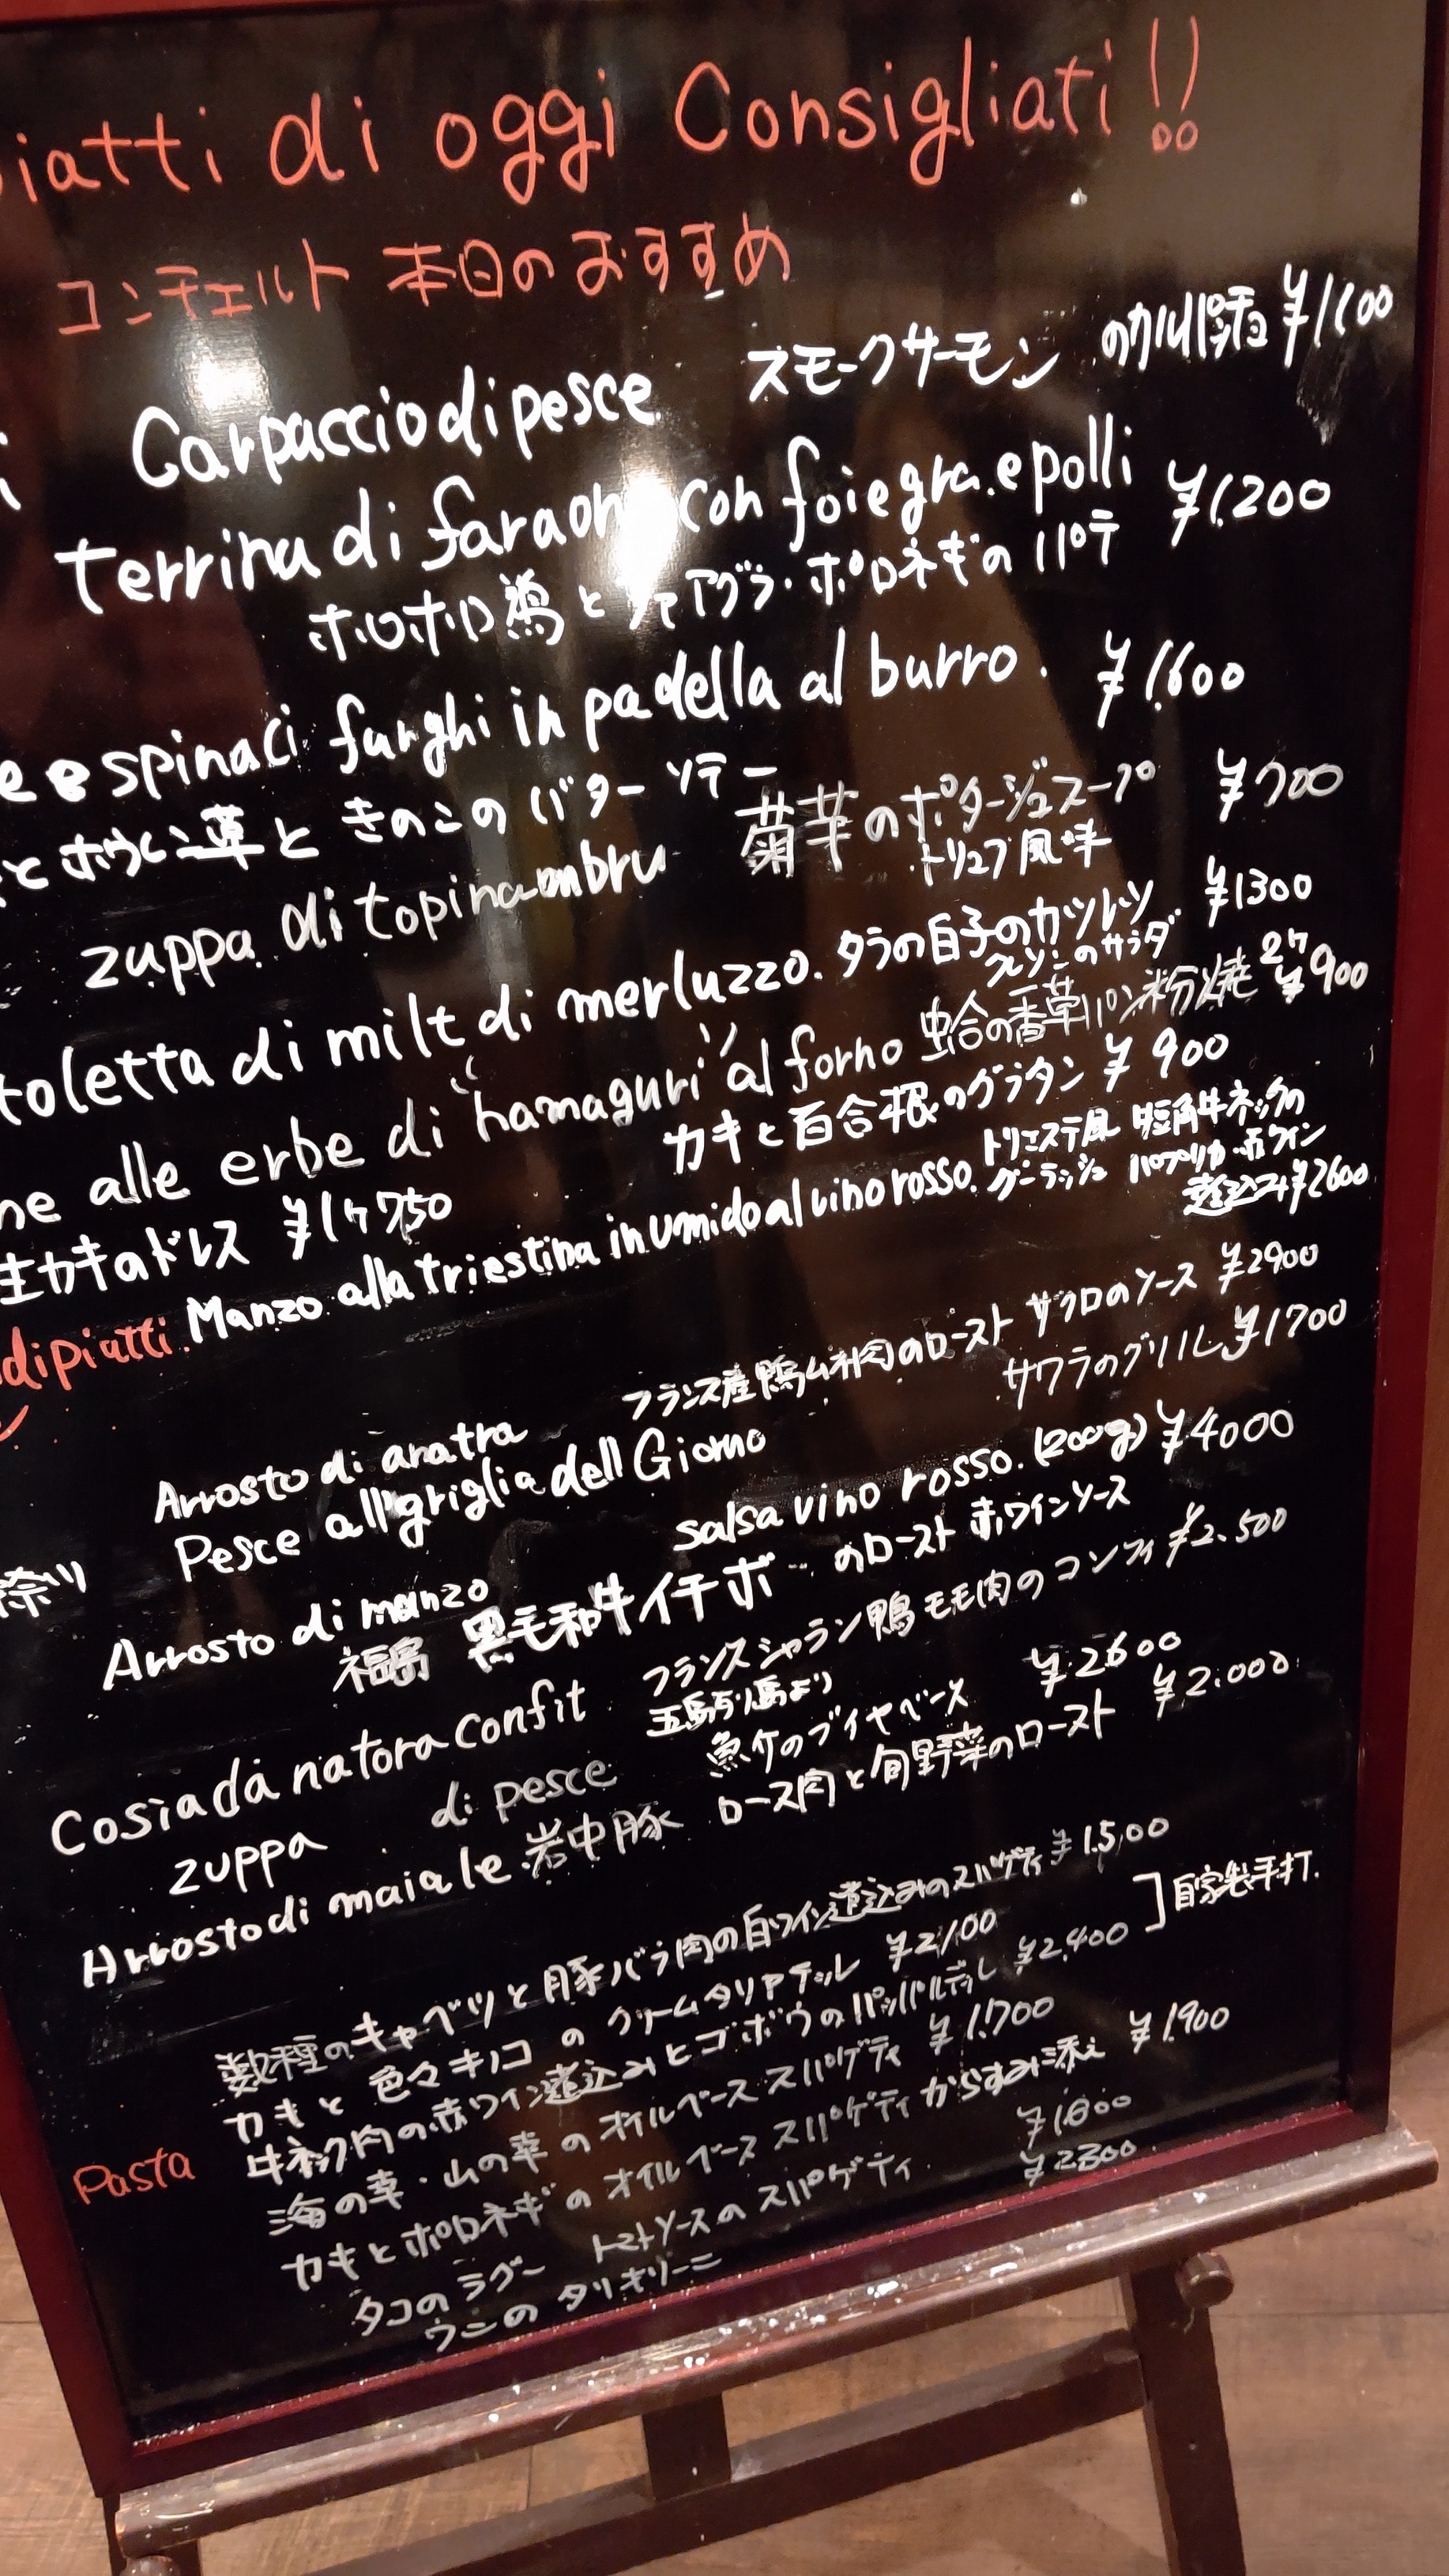 iatti di oggi Consigliati!!
コンチェルト 本日のおすすめ
Carpaccio di pesce スモークサーモン のカルパッチョ ¥1100
terrina di faraon con foiegra.e polli ¥1.200
ホロホロ鶏とフォアグラ・ポロネギの パテ
e e spinaci funghi in padella al burro. ¥1.600
とホウレン草と きのこの バターソテー
zuppa di topinambru 菊芋のポタージュスープ ¥700
トリュフ風味
toletta di milt di merluzzo. タラの白子のカツレツ ¥1300
クレソンのサラダ
ne alle erbe di "hamaguri" al forno 蛤の香草パン粉焼 2ケ ¥900
カキと百合根のグラタン ¥900
生カキのドレス ¥1ケ750
dipiatti. Manzo alla triestina in umido al vino rosso. トリエステ風 短角牛ネックの
グーラッシュ パプリカ・赤ワイン
煮込み¥2600
Arrosto di anatra フランス産鴨ムネ肉のロースト ザクロのソース ¥2900
Pesce all'griglia dell Giorno サワラのグリル ¥1700
Arrosto di manzo salsa vino rosso. (200g) ¥4000
福島 黒毛和牛イチボ のロースト 赤ワインソース
Cosiada natora confit フランスシャラン鴨 モモ肉の コンフィ ¥2.500
五島列島より
zuppa di pesce 魚介のブイヤベース ¥2600
Arrosto di maiale 岩中豚 ロース肉と旬野菜のロースト ¥2.000
数種のキャベツと豚バラ肉の白ワイン煮込みのスパゲティ ¥1.500
カキと 色々キノコ の クリームタリアテッレ ¥2100
牛ネック肉の赤ワイン煮込みとゴボウのパッパルデッレ ¥2.400 ]自家製手打.
Pasta 海の幸・山の幸 のオイルベーススパゲティ ¥1.700
カキとポロネギのオイルベース スパゲティ からすみ添え ¥1.900
タコのラグー トマトソースのスパゲティ.
ウニの タリオリーニ ¥2300